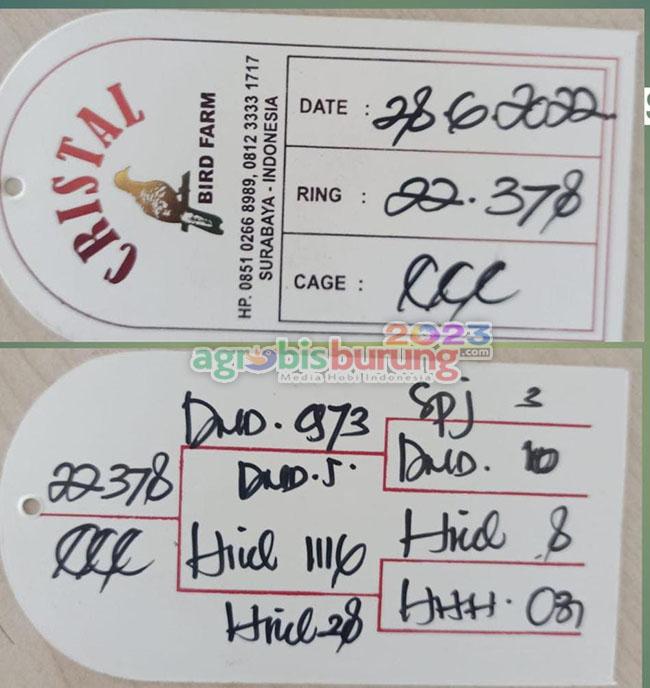 CRISTAL
BIRD FARM
HP. 0851 0266 8989, 0812 3333 1717
SURABAYA - INDONESIA
DATE : 28.6.2022
RING : 22.378
CAGE :
2023
agrobisburung.com
Media Hobi Indonesia
22.378
DMD. 973
DMD. 5.
Spj 3
DMD. 10
1116
28
8
HHH.